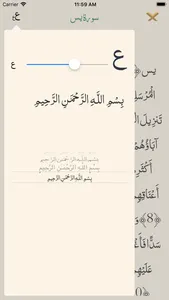 Carrier 11:59 AM
ع سورة يس
ع
ع
بِسْمِ اللَّهِ الرَّحْمَٰنِ الرَّحِيمِ
بِسْمِ اللَّهِ الرَّحْمَٰنِ الرَّحِيمِ
بِسْمِ اللَّهِ الرَّحْمَٰنِ الرَّحِيمِ
بِسْمِ اللَّهِ الرَّحْمَٰنِ الرَّحِيمِ
يس
الْمُرْسَلِ
تَنزِيلَ الْ
آبَاؤُهُمْ
أَكْثَرِ
أَعْنَاقِهِمْ
﴿8﴾ وَ
سَدًّا فَأَ
عَلَيْهِمْ